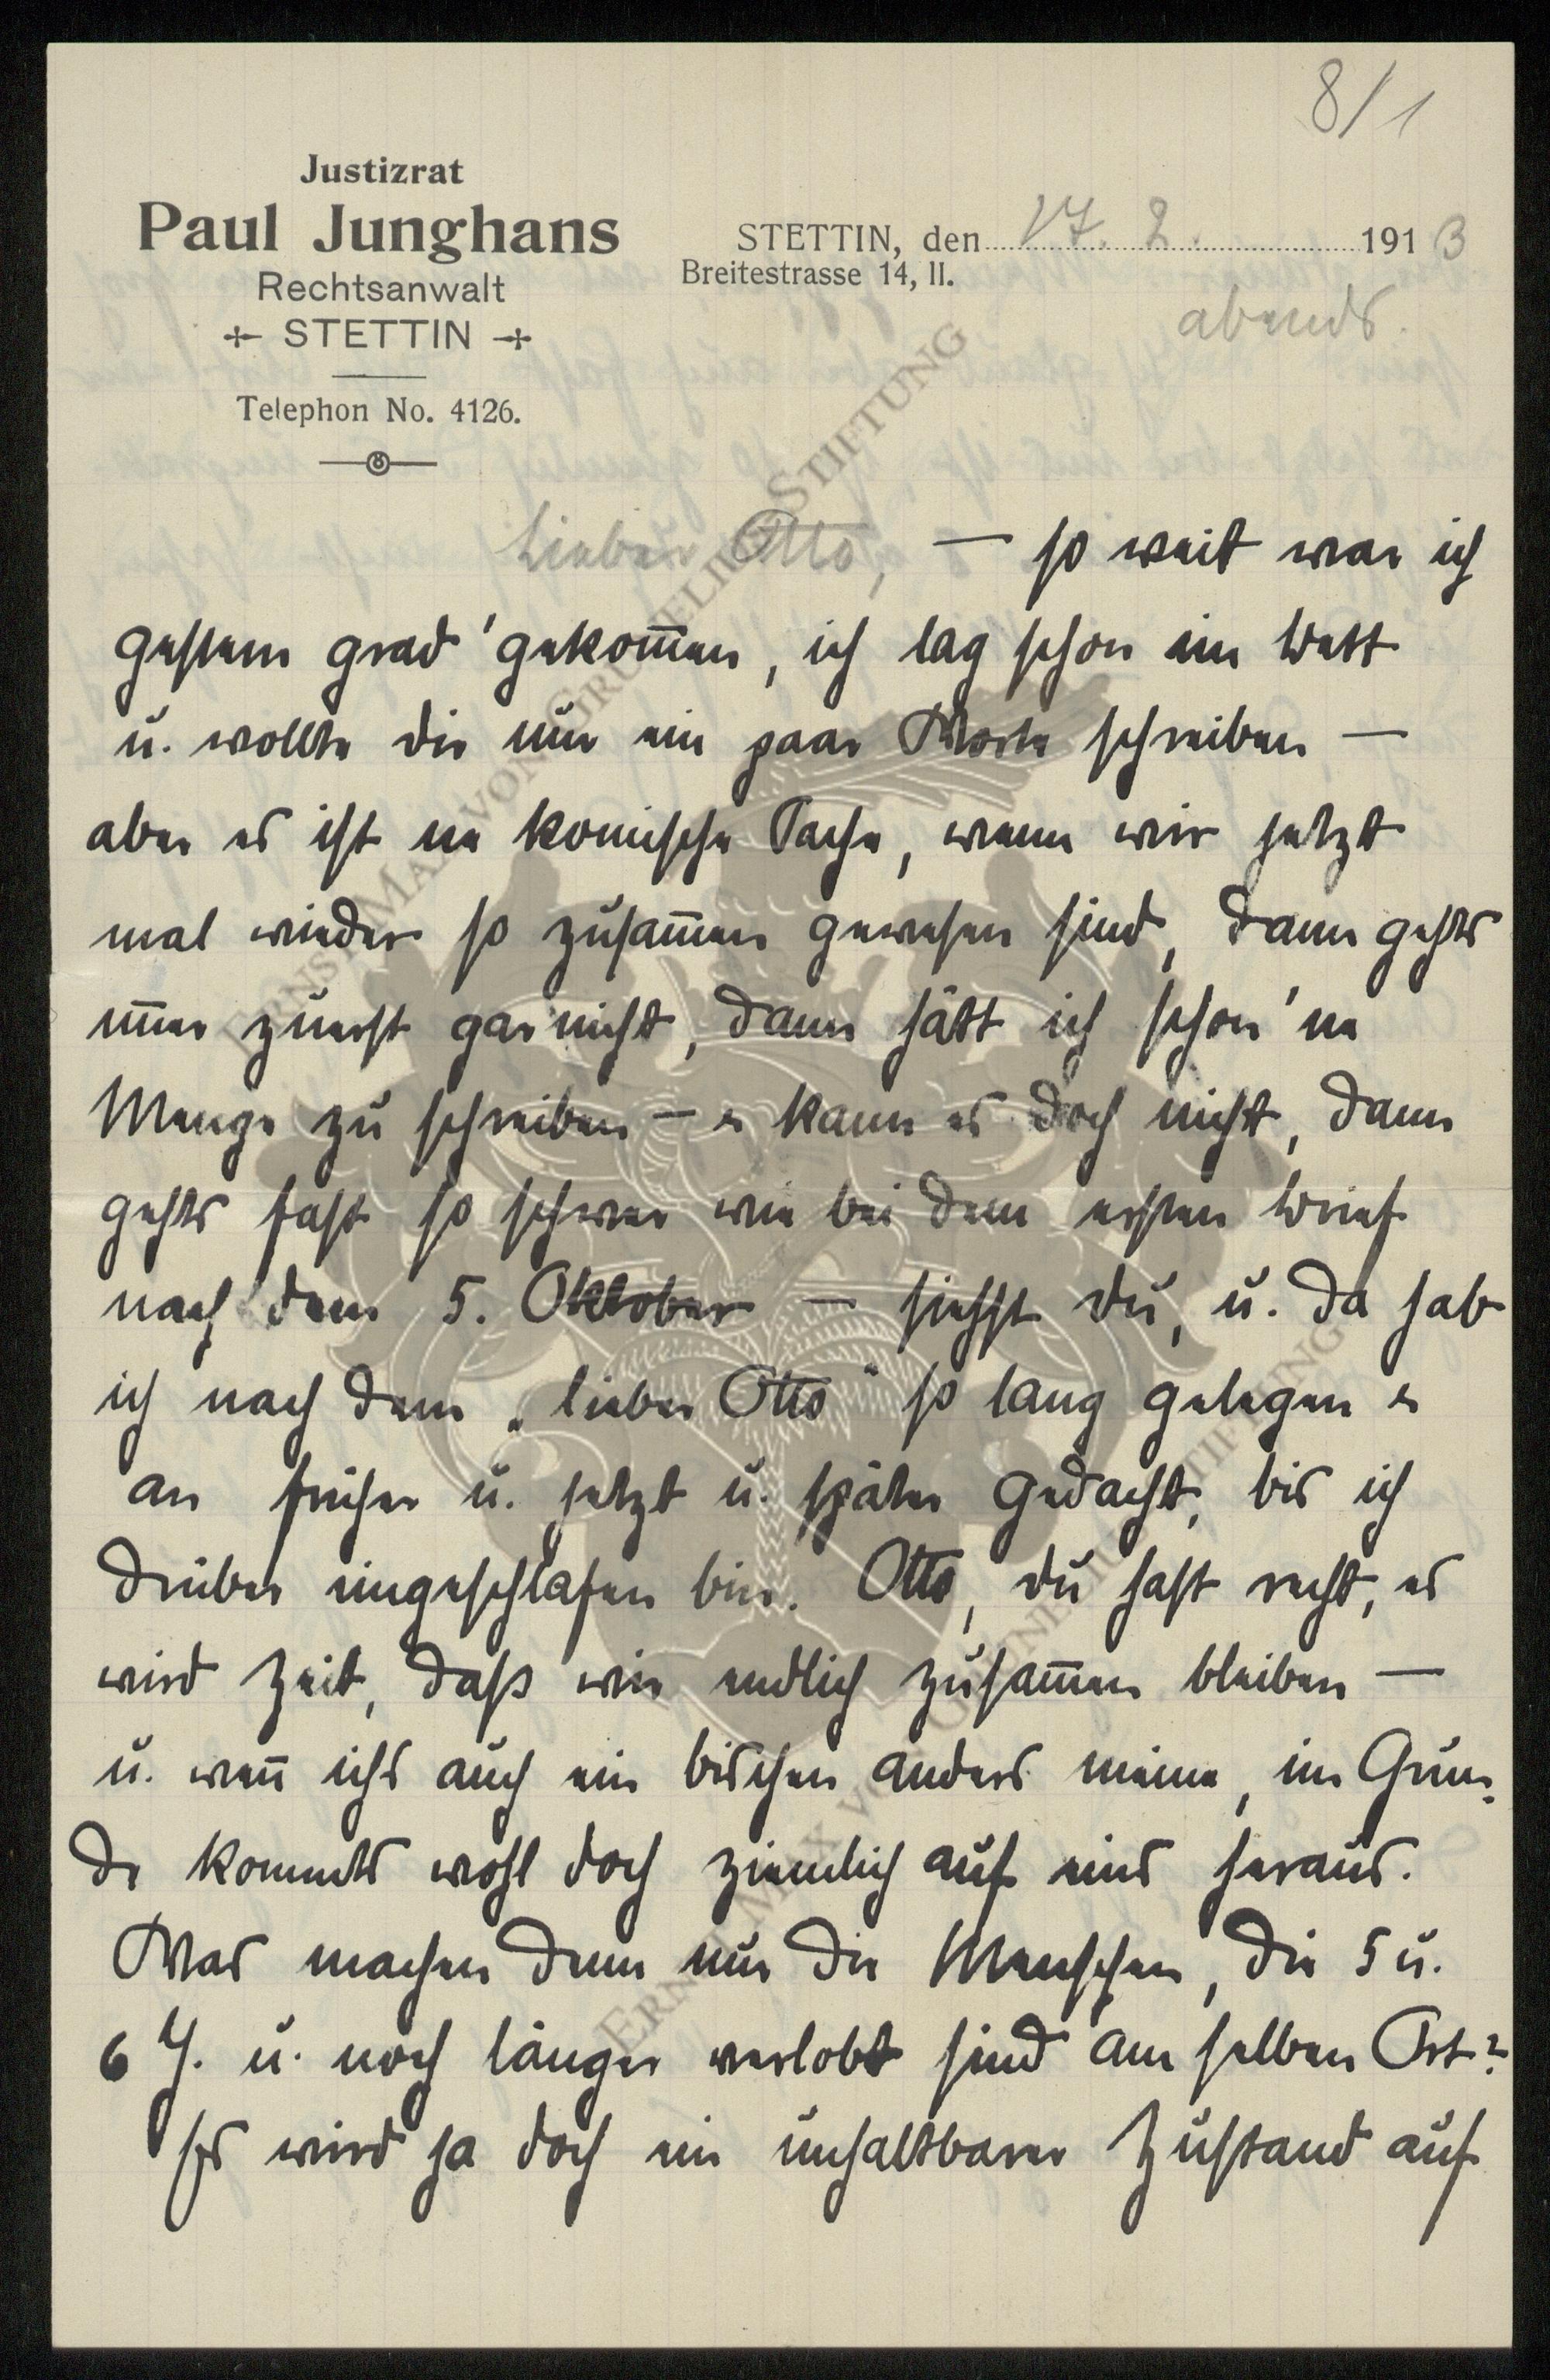 8/1
Justizrat
Paul Junghans
Rechtsanwalt
STETTIN
Telephon No. 4126.
STETTIN, den 17. 2. 1913
Breitestrasse 14, II.
abends.
Lieber Otto, — so weit war ich
gestern grad' gekom̄en, ich lag schon im Bett
u. wollte dir nur ein paar Worte schreiben —
aber es ist ne komische Sache, wenn wir jetzt
mal wieder so zusam̄en gewesen sind, dann gehts
im̄er zuerst gar nicht, dann hätt ich schon 'ne
Menge zu schreiben — u kann es doch nicht, dann
gehts fast so schwer wie bei dem ersten Brief
nach dem 5. Oktober — siehst du, u. da hab
ich nach dem „lieber Otto" so lang gelegen u
an früher u. jetzt u. später gedacht, bis ich
drüber eingeschlafen bin. Otto, du hast recht, es
wird Zeit, daß wir endlich zusam̄en bleiben —
u. wen̄ ichs auch ein bischen anders meine, im Grun-
de kommts wohl doch ziemlich auf eins heraus.
Was machen denn nur die Menschen, die 5 u.
6 J. u. noch länger verlobt sind am selben Ort?
Es wird ja doch ein unhaltbarer Zustand auf
ERNST MAX VON GRUNELIUS-STIFTUNG
ERNST MAX VON GRUNELIUS-STIFTUNG